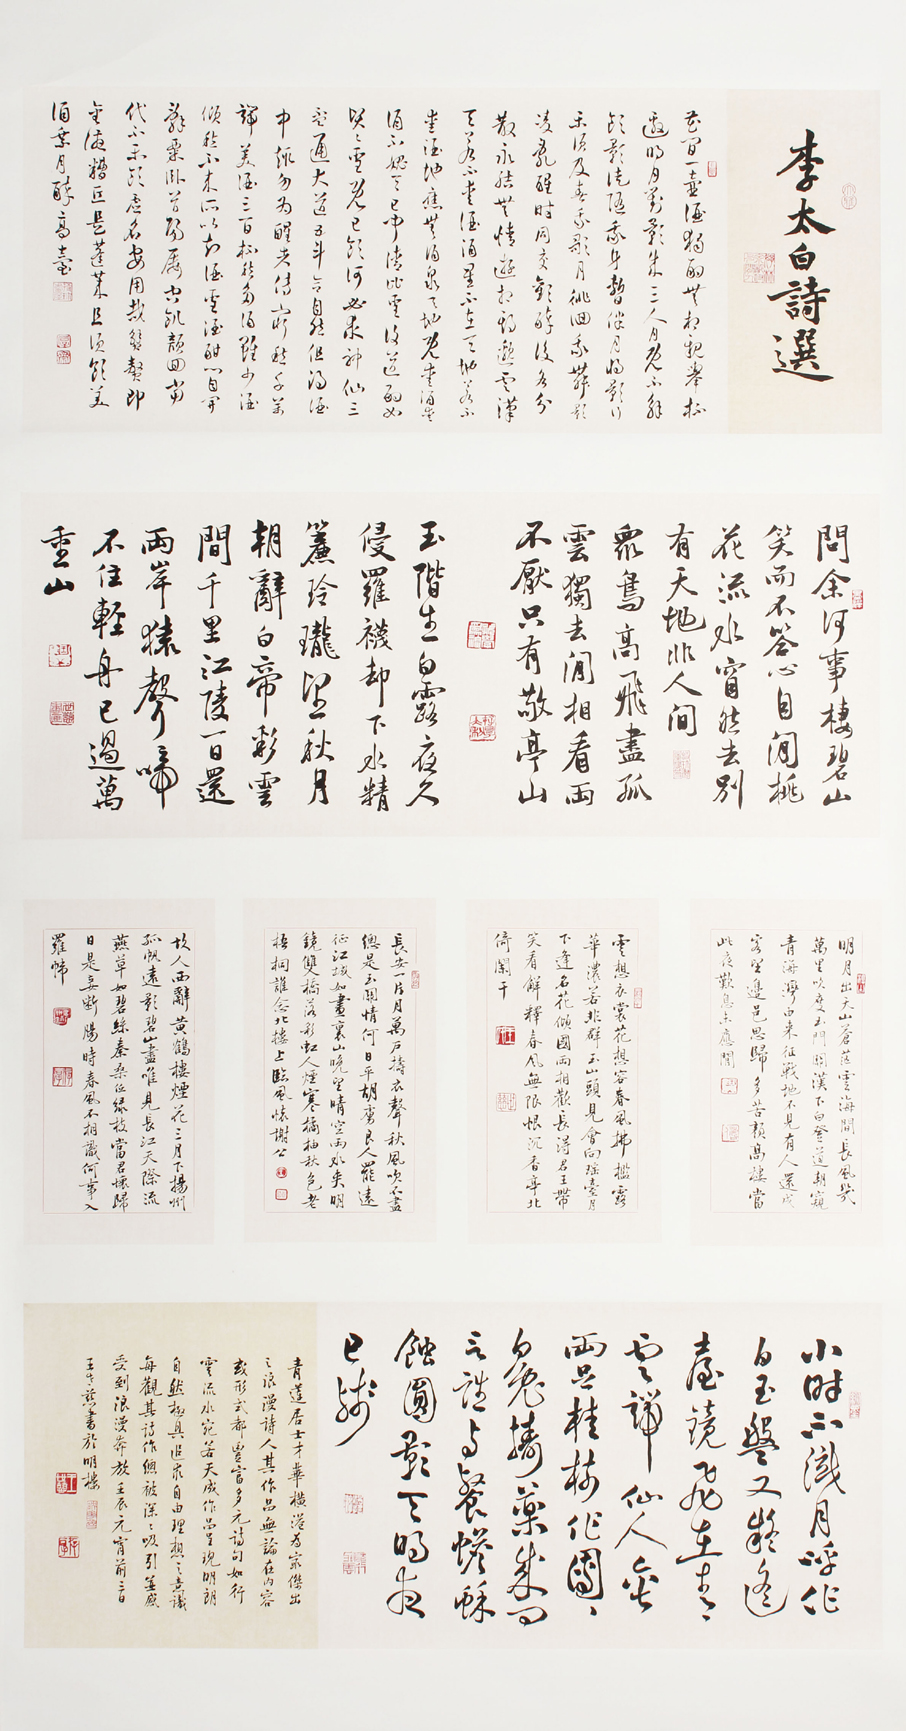 李太白詩選
花間一壺酒獨酌無相親舉杯
邀明月對影成三人月既不解
飲影徒隨我身暫伴月將影行
樂須及春我歌月徘徊我舞影
凌亂醒時同交歡醉後各分
散永結無情遊相期邈雲漢
天若不愛酒酒星不在天地若不
愛酒地應無酒泉天地既愛酒愛
酒不愧天已聞清比聖復道濁如
賢賢聖既已飲何必求神仙三
杯通大道一斗合自然但得酒
中趣勿為醒者傳窮愁千萬
端美酒三百杯愁多酒雖少酒
傾愁不來所以知酒聖酒酣心自開
辭粟臥首陽屢空飢顏回當
代不樂飲虛名安用哉蟹螯即
金液糟丘是蓬萊且須飲美
酒乘月醉高臺
問余何事棲碧山
笑而不答心自閒桃
花流水窅然去別
有天地非人間
眾鳥高飛盡孤
雲獨去閒相看兩
不厭只有敬亭山
玉階生白露夜久
侵羅襪却下水精
簾玲瓏望秋月
朝辭白帝彩雲
間千里江陵一日還
兩岸猿聲啼
不住輕舟已過萬
重山
明月出天山蒼茫雲海間長風幾
萬里吹度玉門關漢下白登道胡窺
青海灣由來征戰地不見有人還戍
客望邊邑思歸多苦顏高樓當
此夜歎息未應閒
雲想衣裳花想容春風拂檻露
華濃若非群玉山頭見會向瑤臺月
下逢名花傾國兩相歡長得君王帶
笑看解釋春風無限恨沉香亭北
倚闌干
長安一片月萬戶擣衣聲秋風吹不盡
總是玉關情何日平胡虜良人罷遠
征江城如畫裏山晚望晴空兩水夾明
鏡雙橋落彩虹人煙寒橘柚秋色老
梧桐誰念北樓上臨風懷謝公
故人西辭黃鶴樓煙花三月下揚州
孤帆遠影碧山盡唯見長江天際流
燕草如碧絲秦桑低綠枝當君懷歸
日是妾斷腸時春風不相識何事入
羅幃
小時不識月呼作
白玉盤又疑瑤
臺鏡飛在青
雲端仙人垂
兩足桂樹作團團
白兔擣藥成問
言誰與餐蟾蜍
蝕圓影天明夜
已殘
青蓮居士才華橫溢為宗傑出
之浪漫詩人其作品無論在內容
或形式都豐富多元詩句如行
雲流水宛若天成作品呈現明朗
自然極具追求自由理想之意識
每觀其詩作總被深深吸引並感
受到浪漫奔放壬辰元宵前三日
王士慈書於明樓